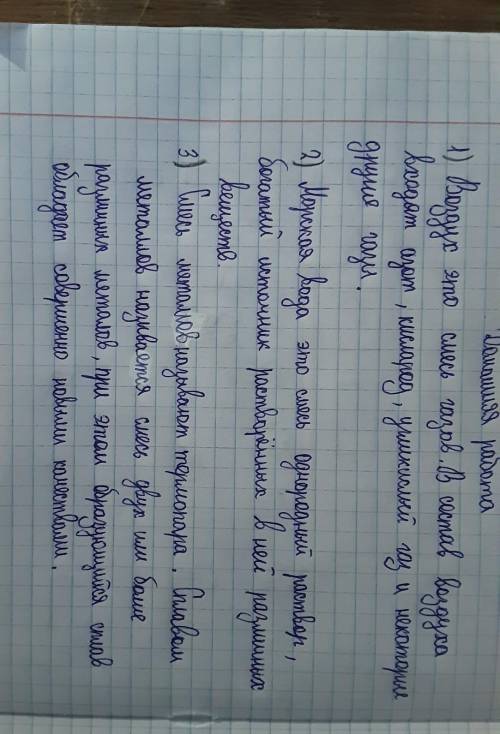 Домашняя работа
1) Воздух это смесь газов. В состав воздуха
входят азот, кислород, углекислый газ и некоторые
другие газы.
2) Морская вода это смесь однородный раствор,
богатый источник растворённых в ней различных
веществ.
3) Смесь металлов называют термопара. Сплавом
металлов называется смесь двух или боле
различных металов, при этом образующийся сплав
обладает совершенно новыми качествами.